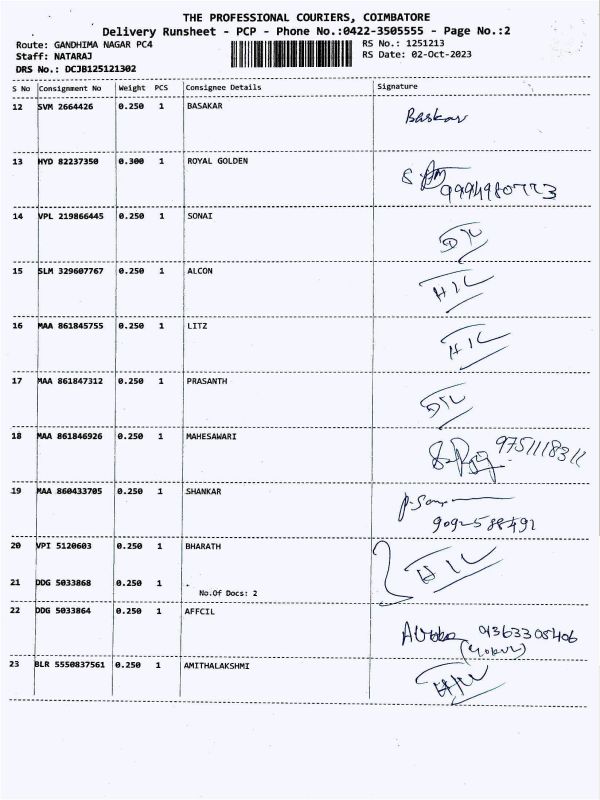 THE PROFESSIONAL COURIERS, COIMBATORE
Delivery Runsheet - PCP - Phone No.:0422-3505555 - Page No.:2
Route: GANDHIMA NAGAR PC4 RS No.: 1251213
Staff: NATARAJ RS Date: 02-Oct-2023
DRS No.: DCJB125121302
S No Consignment No Weight PCS Consignee Details Signature
12 SVM 2664426 0.250 1 BASAKAR Baskar
13 HYD 82237350 0.300 1 ROYAL GOLDEN
14 VPL 219866445 0.250 1 SONAI
15 SLM 329607767 0.250 1 ALCON HIL
16 MAA 861845755 0.250 1 LITZ HIL
17 MAA 861847312 0.250 1 PRASANTH
18 MAA 861846926 0.250 1 MAHESAWARI
19 MAA 860433705 0.250 1 SHANKAR
20 VPI 5120603 0.250 1 BHARATH HIL
21 DDG 5033868 0.250 1 .
No.Of Docs: 2
22 DDG 5033864 0.250 1 AFFCIL
23 BLR 5550837561 0.250 1 AMITHALAKSHMI